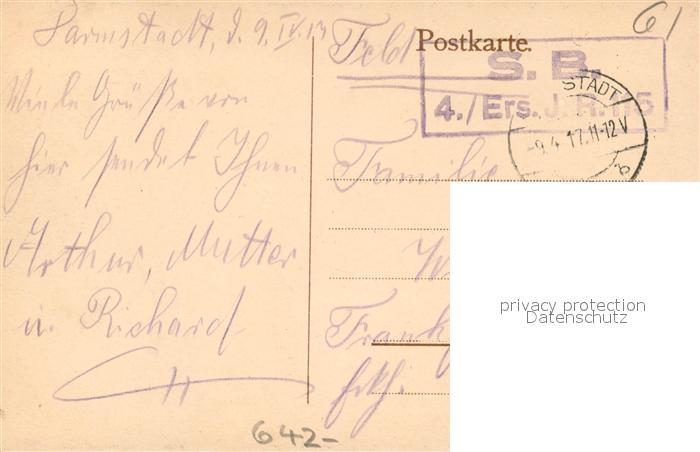 Darmstadt, d. 9. IV. 17
Viele Grüße von
hier sendet Ihnen
Arthur, Mutter
u. Richard
Feld Postkarte.
S. B.
4./Ers. J. R. 115
STADT
-9.4.17.11-12V
Familie
W
Frank
61
642-
privacy protection
Datenschutz